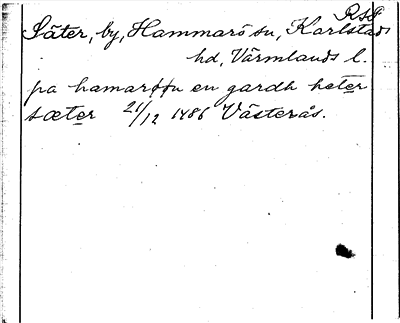 RSP
Säter, by, Hammarö sn, Karlstads
hd, Värmlands l.
pa hamarøøn en gardh heter
sæter 21/12 1486 Västerås.